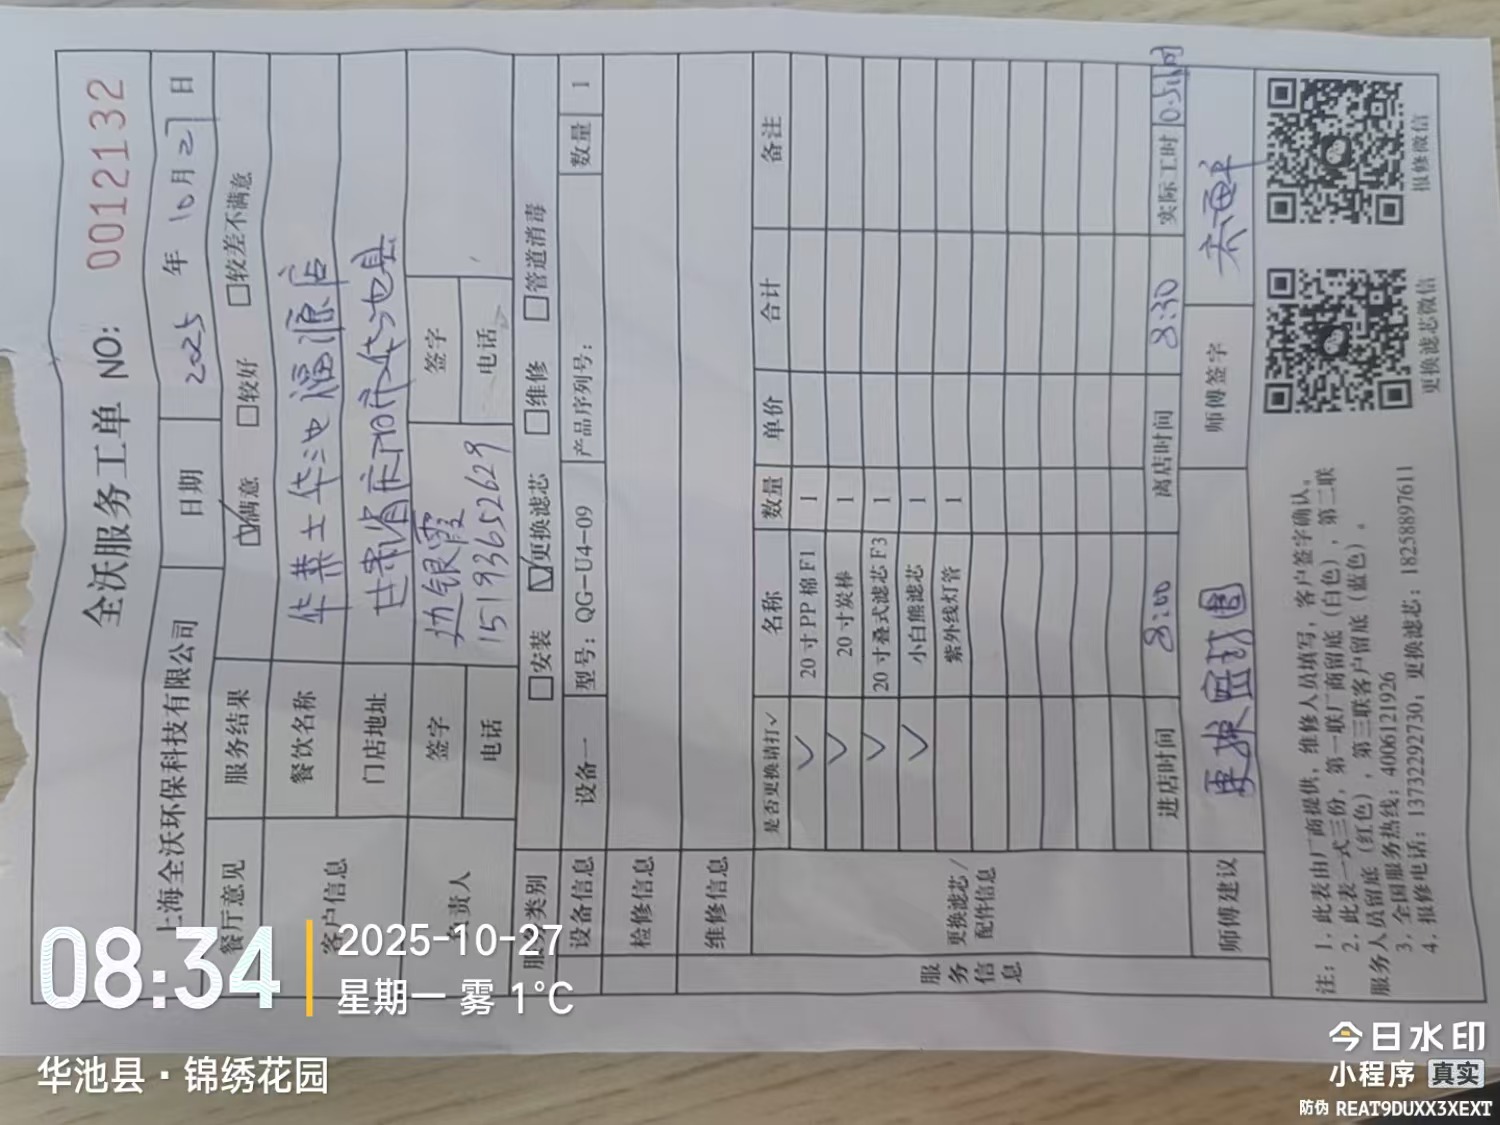 全沃服务工单 NO: 0012132
上海全沃环保科技有限公司 日期 2025 年 10 月 27 日
餐厅意见 服务结果 ☑满意 □较好 □较差不满意
客户信息 餐饮名称 华莱士华池福源店
门店地址 甘肃省庆阳市华池县
负责人 签字 边银霞 签字
电话 15193652629 电话
服务类别 □安装 ☑更换滤芯 □维修 □管道消毒
设备信息 设备一 型号：QG-U4-09 产品序列号： 数量 1
检修信息
维修信息
服务信息
更换滤芯/配件信息
是否更换请打✓ 名称 数量 单价 合计 备注
✓ 20寸PP棉F1 1
✓ 20寸炭棒 1
✓ 20寸叠式滤芯F3 1
✓ 小白熊滤芯 1
紫外线灯管 1
进店时间 8:00 离店时间 8:30 实际工时 0.5小时
师傅建议 师傅签字
注：1、此表由厂商提供，维修人员填写，客户签字确认。
2、此表一式三份，第一联厂商留底（白色），第二联
服务人员留底（红色），第三联客户留底（蓝色）。
3、全国服务热线：4006121926
4、报修电话：13732292730；更换滤芯：18258897611
更换滤芯微信
报修微信
08:34
2025-10-27
星期一 雾 1℃
华池县·锦绣花园
今日水印
小程序 真实
防伪 REAT9DUXX3XEXT